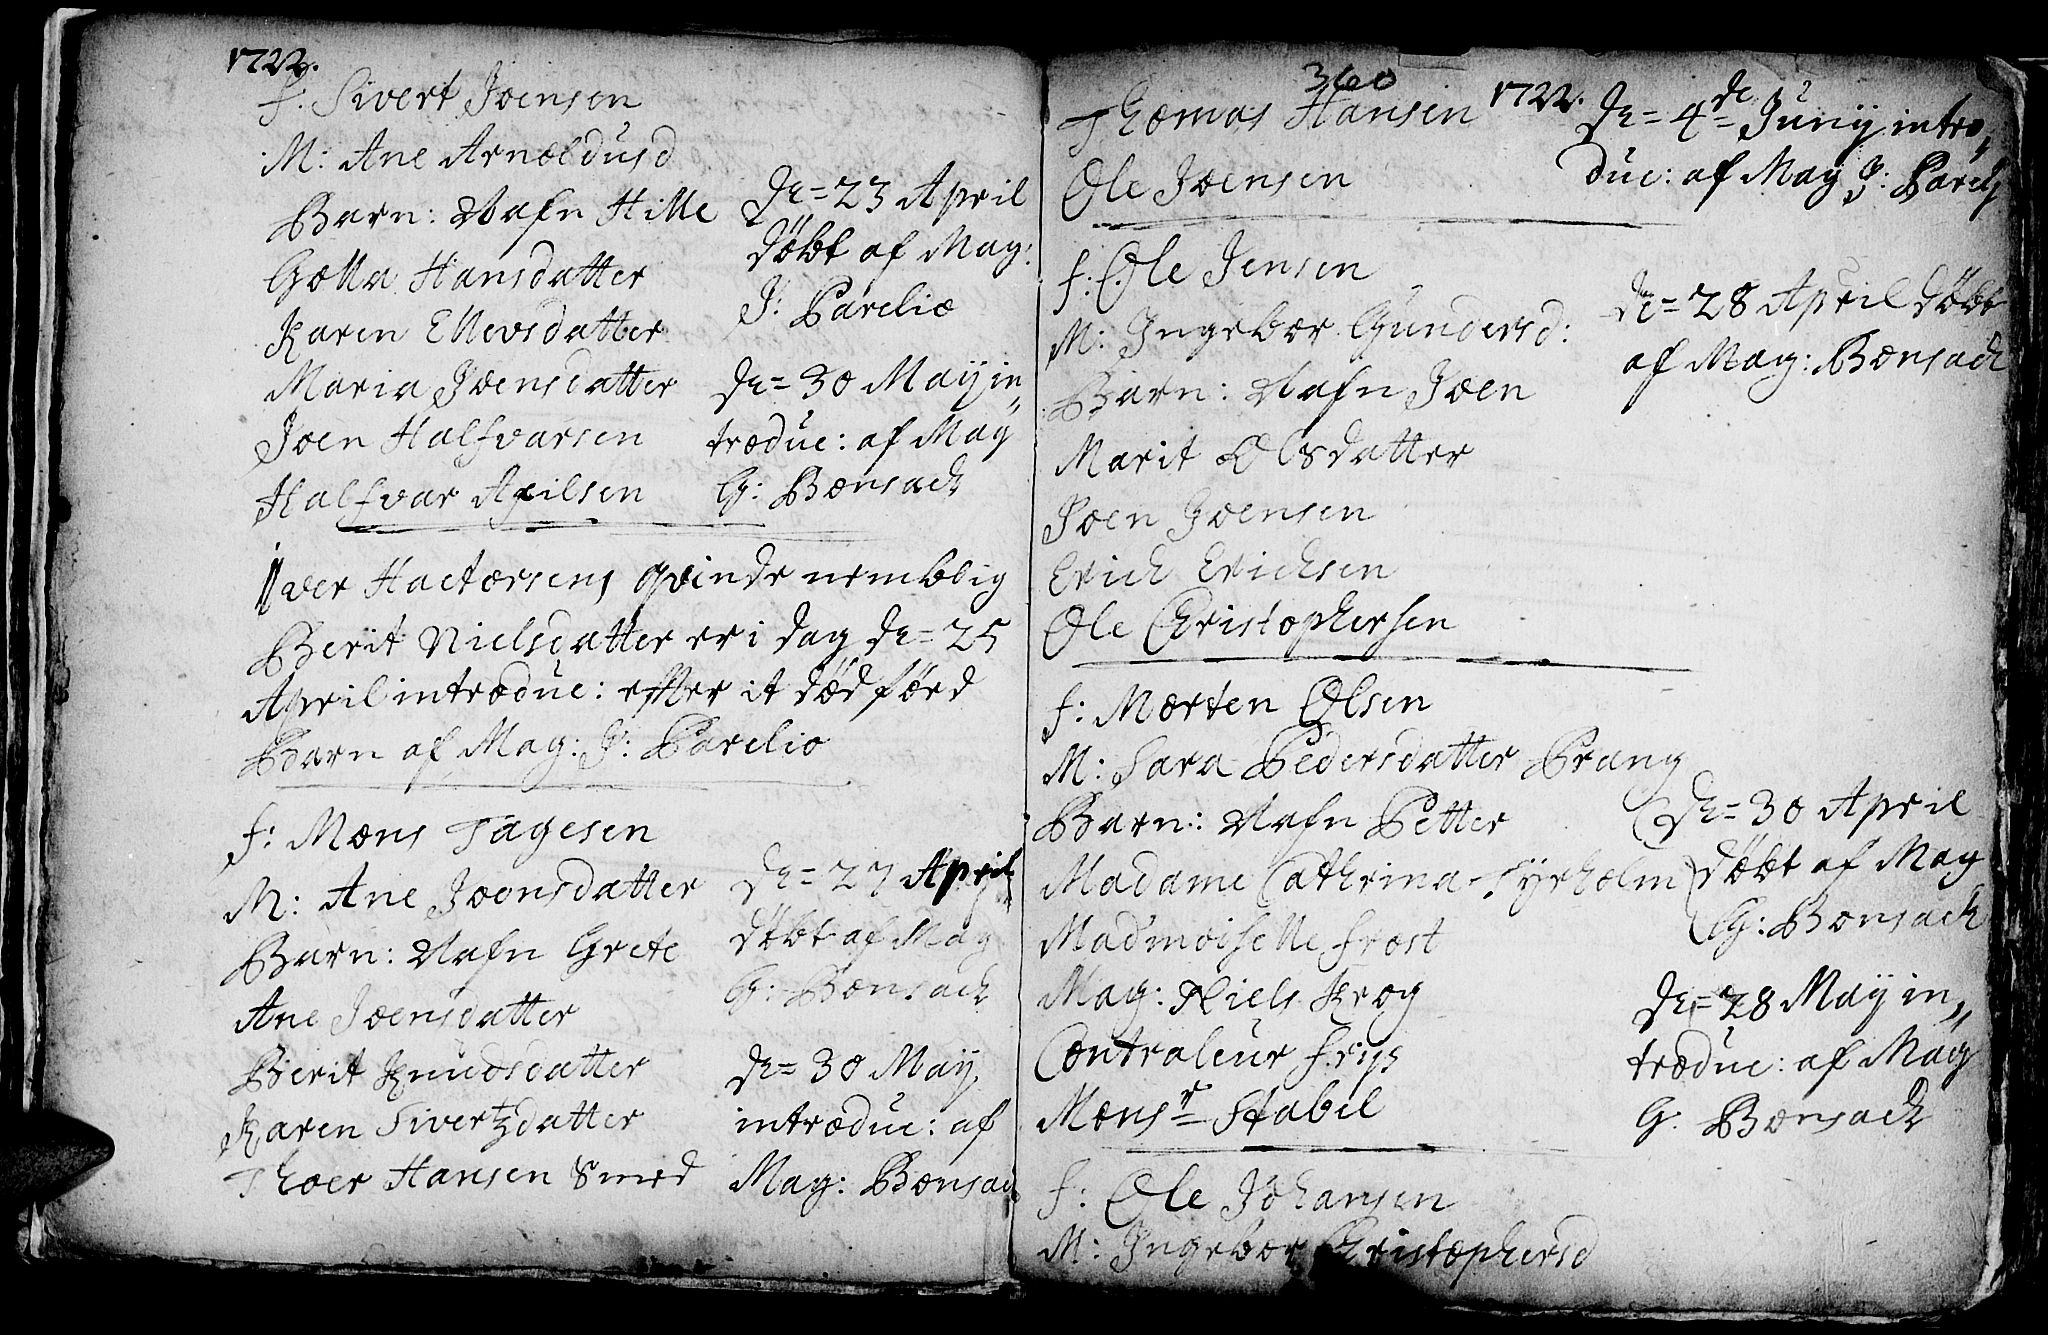 1722.
f. Sivert Joensen
M: Ane Arnoeldusd
Barn: Nafn Hille
Gollla Hansdatter
Karen Ellevsdatter
Maria Joensdatter
Joen Halfvarsen
Halfvar Afilsen
De= 23 April
döbt af Mag:
J: Parelio
De= 30 Maÿ in„
troduc: af Mag
G: Bonsack
Iver Hactorsens qvinde nemblig
Berit Nielsdatter er i dag de= 25
April introduc: effter it död förd
Barn af Mag: J: Parelio
f: Mons Tagesen
M: Ane Joensdatter
Barn: Nafn Grete
Ane Joensdatter
Berit Knudsdatter
Karen Sivertzdatter
Thoer Hansen Smed
De= 27 April
döbt af Mag
G: Bonsack
De= 30 Maÿ
introduc: af
Mag: Bonsac
360
1722.
Thomas Hansen
Ole Joensen
De= 4de Junÿ intro„
duc: af Mag J: Parely
f: Ole Jensen
M: Ingebor Gundersd:
Barn: Nafn Joen
Marit Olsdatter
Joen Joensen
Erich Erichsen
Ole Christophersen
De= 28 April döbt
af Mag: Bonsack
f: Morten Olsen
M: Sara Pedersdatter Prang
Barn: Nafn Petter
Madame Cathrina Tyrholm
Madmoiselle Frost
Mag: Niels Krog
Contraleur friis
Monsr Stabel
De= 30 April
döbt af Mag
G: Bonsack
De= 28 Maÿ in„
troduc: af Mag
G: Bonsack
f: Ole Johansen
M: Ingebor Christophersd